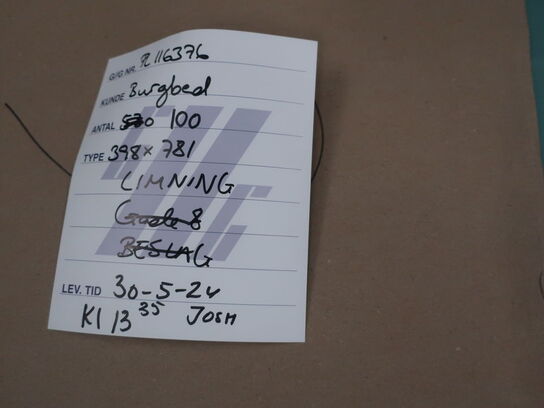 G/G NR. PL 116376
KUNDE Burgbed
ANTAL 530 100
TYPE 398 x 781
LIMNING
Grade 8
BESLAG
LEV. TID 30-5-24
Kl 13 35 JOSH